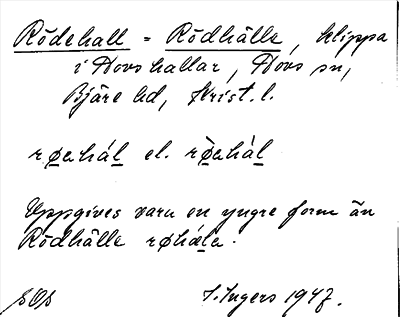 Rödehall = Rödhälle, klippa
i Hovs hallar, Hovs sn,
Bjäre hd, Krist. l.
røₑhál el. rø̀ₑhál
Uppgives vara en yngre form än
Rödhälle røhæle.
I. Ingers 1947.